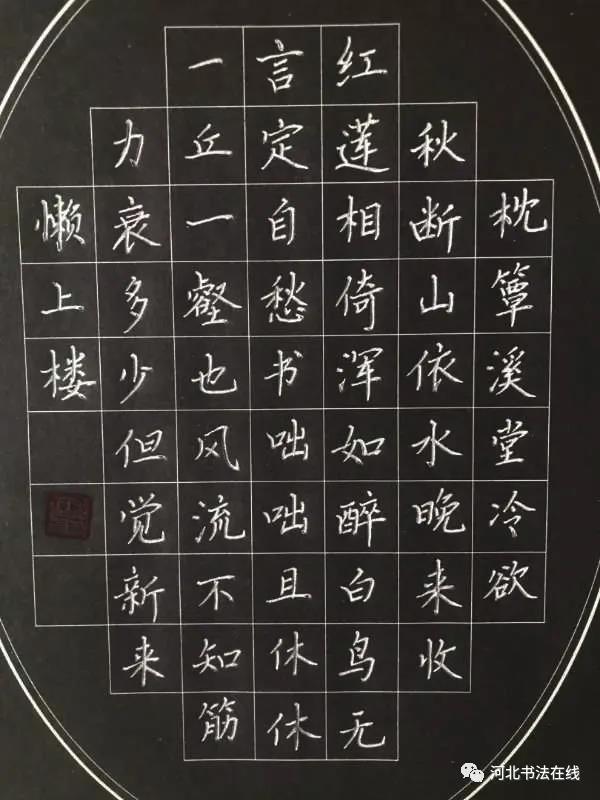 枕簟溪堂冷欲
秋断山依水晚来收
红莲相倚浑如醉白鸟无
言定自愁书咄咄且休休
一丘一壑也风流不知筋
力衰多少但觉新来
懒上楼
河北书法在线